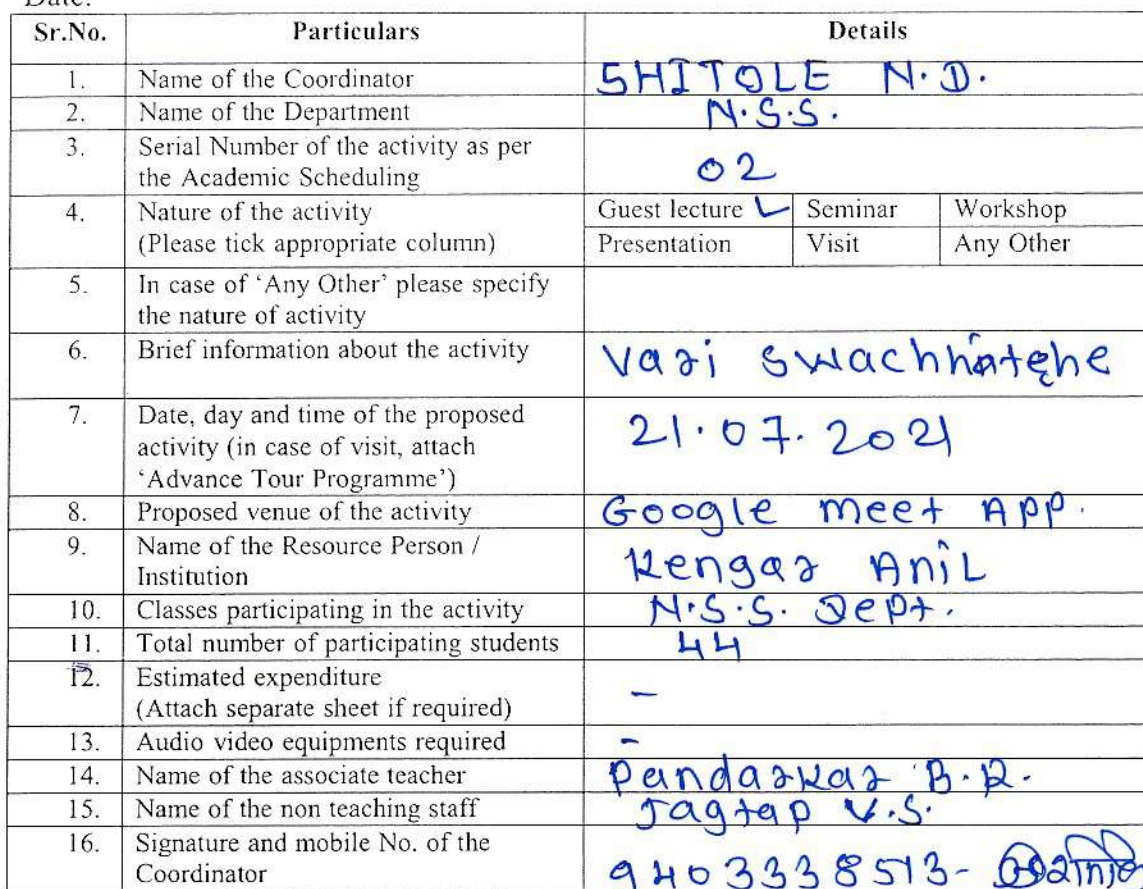 Date:
Sr.No. Particulars Details
1. Name of the Coordinator SHITOLE N.D.
2. Name of the Department N.S.S.
3. Serial Number of the activity as per
the Academic Scheduling 02
4. Nature of the activity Guest lecture ✓ Seminar Workshop
(Please tick appropriate column) Presentation Visit Any Other
5. In case of 'Any Other' please specify
the nature of activity
6. Brief information about the activity Vari
7. Date, day and time of the proposed
activity (in case of visit, attach 21.07.2021
'Advance Tour Programme')
8. Proposed venue of the activity Google meet App.
9. Name of the Resource Person /
Institution Kengar Anil
10. Classes participating in the activity N.S.S. Dept.
11. Total number of participating students 44
12. Estimated expenditure
(Attach separate sheet if required) -
13. Audio video equipments required -
14. Name of the associate teacher Pandarkar B.R.
15. Name of the non teaching staff Jagtap V.S.
16. Signature and mobile No. of the
Coordinator 9403338513-